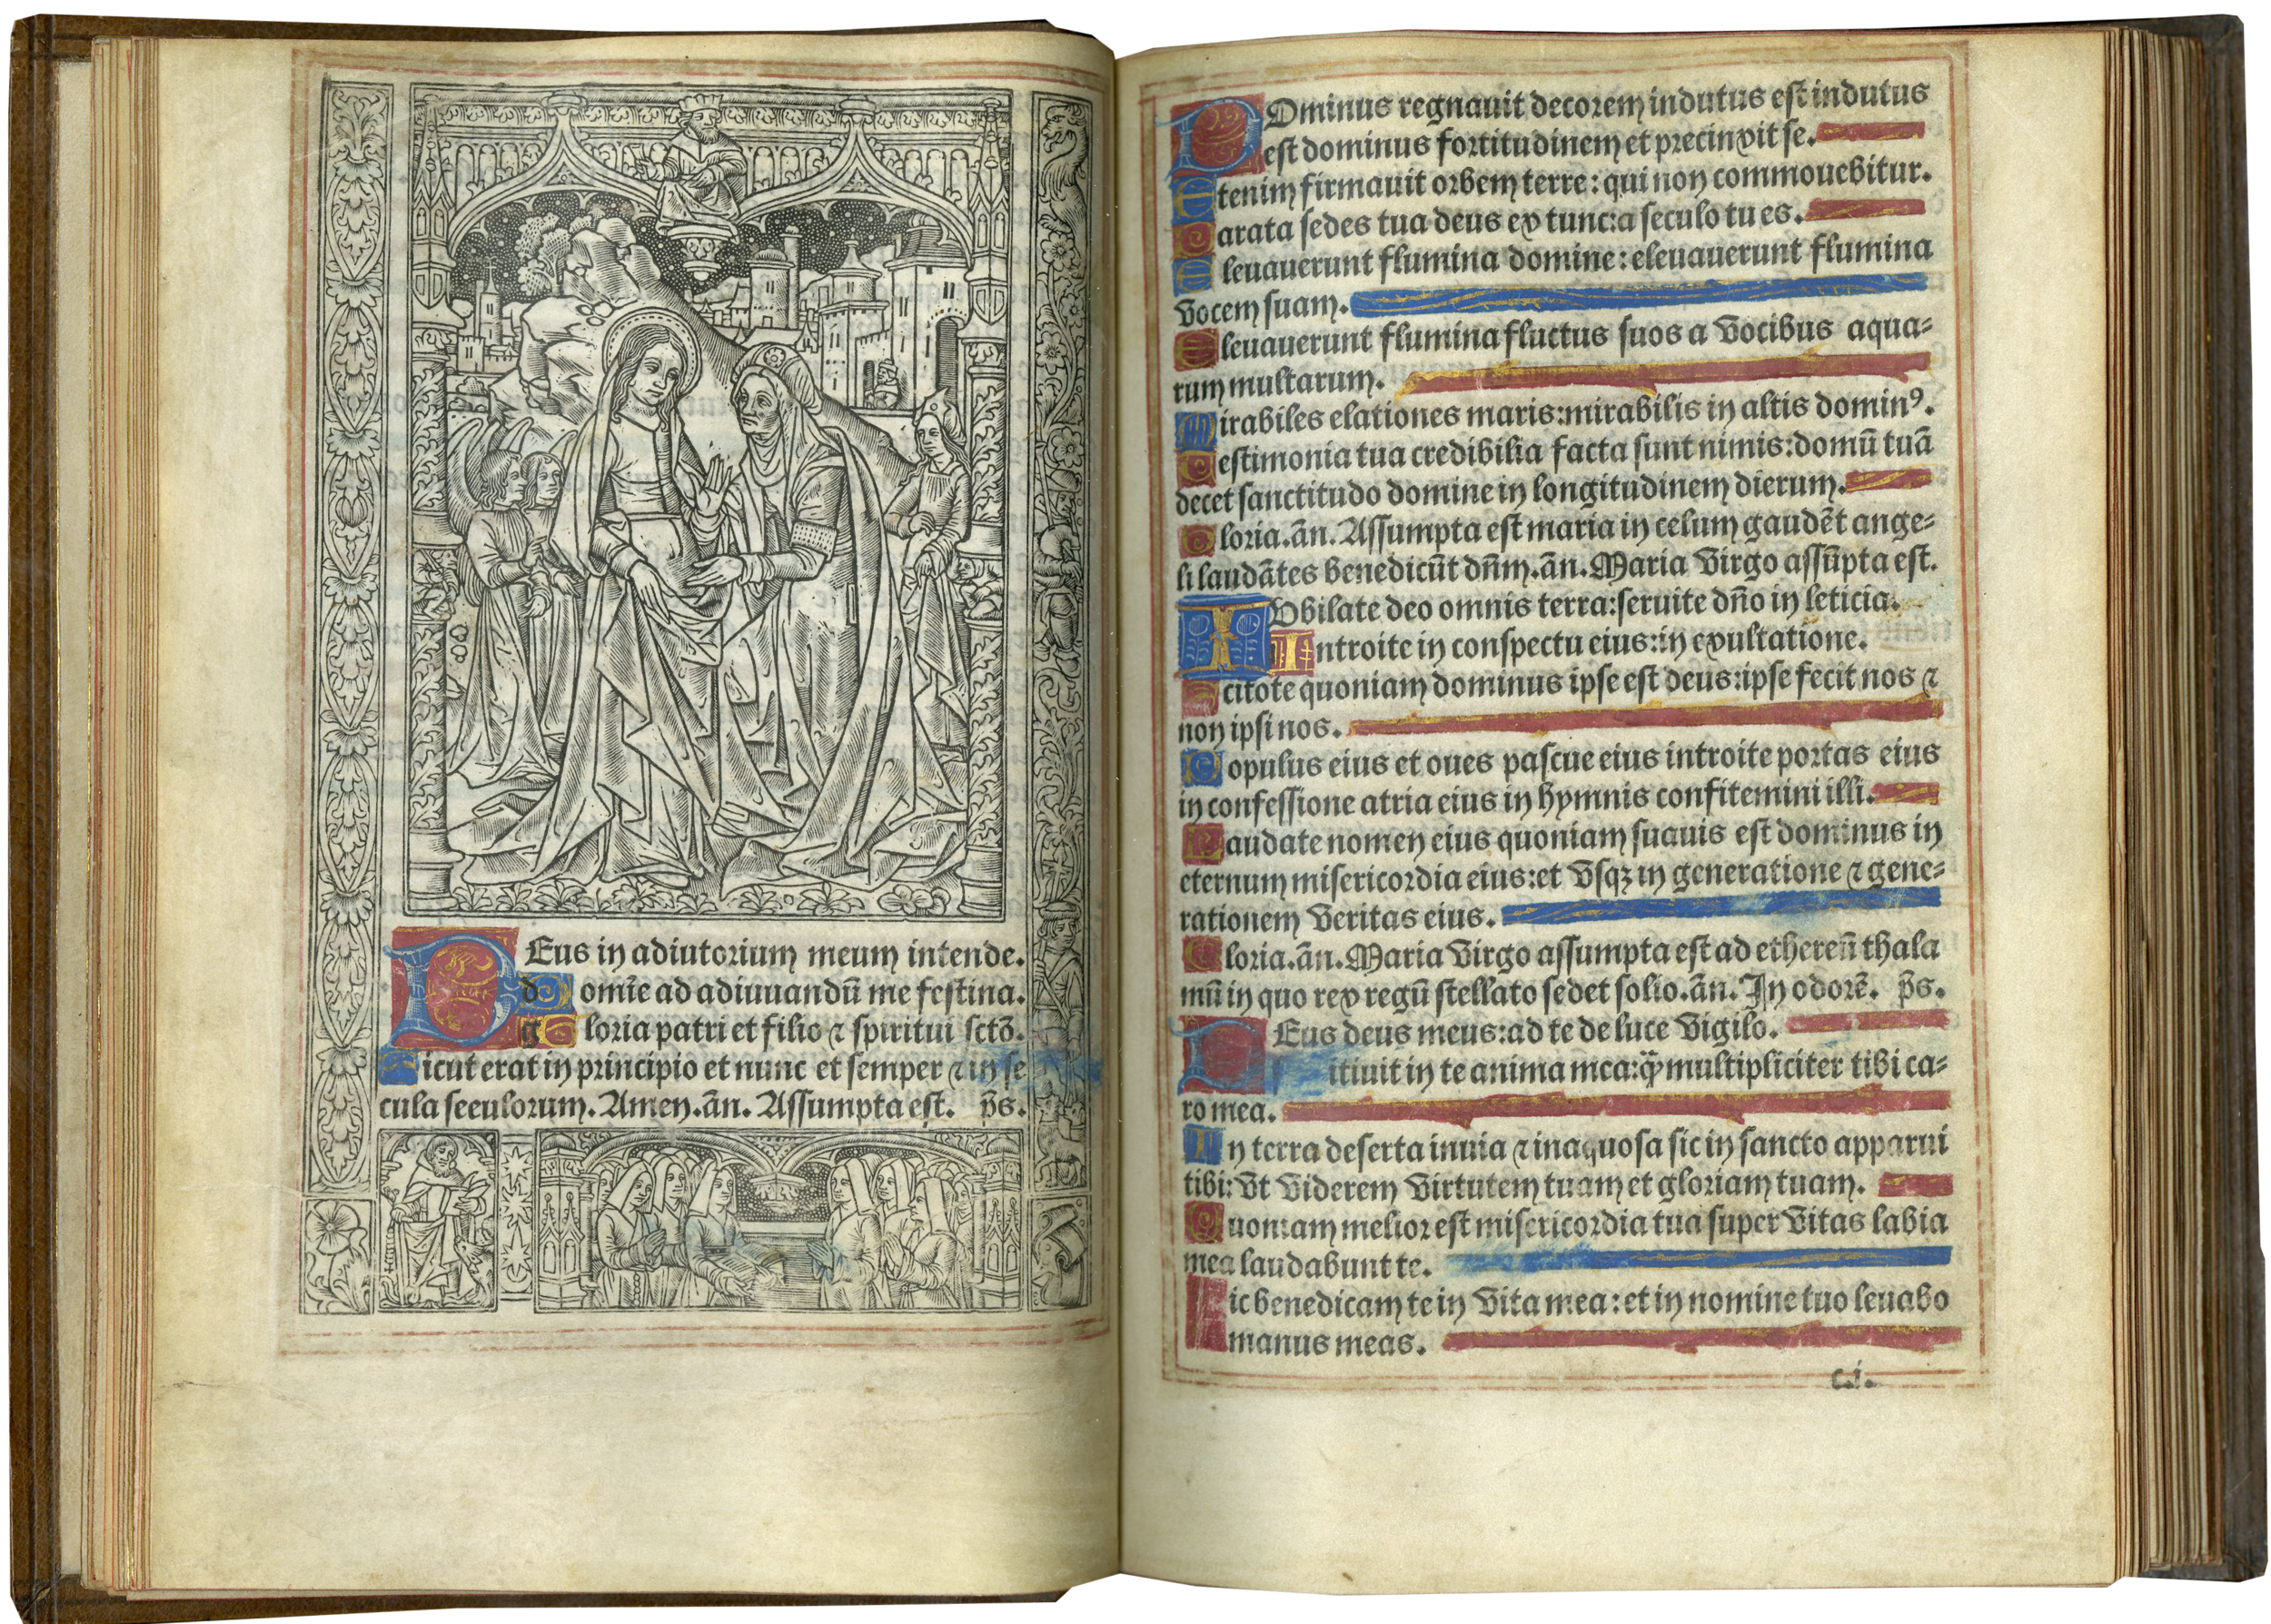 DEus in adiutorium meum intende.
domīe ad adiuuandū me festina.
gloria patri et filio ⁊ spiritui sctō.
Sicut erat in principio et nunc et semper ⁊ in se
cula seculorum. Amen. añ. Assumpta est. p̄s.
DOminus regnauit decorem indutus est indutus
est dominus fortitudinem et precinxit se.
Etenim firmauit orbem terre: qui non commouebitur.
Parata sedes tua deus ex tunc: a seculo tu es.
Eleuauerunt flumina domine: eleuauerunt flumina
vocem suam.
Eleuauerunt flumina fluctus suos a vocibus aqua-
rum multarum.
Mirabiles elationes maris: mirabilis in altis dominꝰ.
Testimonia tua credibilia facta sunt nimis: domū tuā
decet sanctitudo domine in longitudinem dierum.
Gloria. añ. Assumpta est maria in celum gaudēt ange-
li laudātes benedicūt dn̄m. añ. Maria virgo assūpta est.
IObilate deo omnis terra: seruite dn̄o in leticia.
Introite in conspectu eius: in exultatione.
Scitote quoniam dominus ipse est deus: ipse fecit nos ⁊
non ipsi nos.
Populus eius et oues pascue eius introite portas eius
in confessione atria eius in hymnis confitemini illi.
Laudate nomen eius quoniam suauis est dominus in
eternum misericordia eius: et vsqꝫ in generatione ⁊ gene-
rationem veritas eius.
Gloria. añ. Maria virgo assumpta est ad ethereū thala
mū in quo rex regū stellato sedet solio. añ. In odorē. p̄s.
DEus deus meus: ad te de luce vigilo.
itiuit in te anima mea: q̈ꝫ multipliciter tibi ca-
ro mea.
In terra deserta inuia ⁊ inaquosa sic in sancto apparui
tibi: vt viderem virtutem tuam et gloriam tuam.
Quoniam melior est misericordia tua super vitas labia
mea laudabunt te.
Sic benedicam te in vita mea: et in nomine tuo leuabo
manus meas.
c.i.